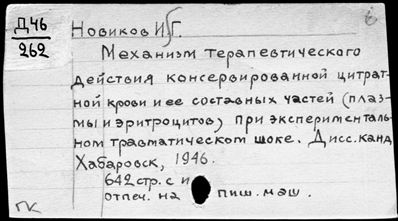 Д46
262
Новиков И.Г.
Механизм терапевтического
действия консервированной цитрат-
ной крови и ее составных частей (плаз-
мы и эритроцитов) при эксперименталь-
ном травматическом шоке. Дисс. канд
Хабаровск, 1946.
642 стр. с и
отпеч. на пиш. маш.
ПК